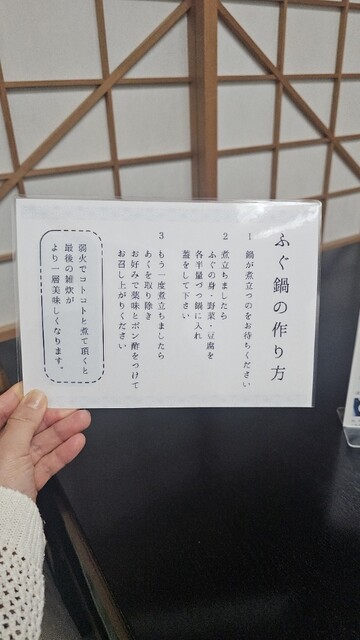 ふぐ鍋の作り方
1 鍋が煮立つのをお待ちください
2 煮立ちましたら
ふぐの身・野菜・豆腐を
各半量づつ鍋に入れ
蓋をして下さい
3 もう一度煮立ちましたら
あくを取り除き
お好みで薬味とポン酢をつけて
お召し上がりください
弱火でコトコトと煮て頂くと
最後の雑炊が
より一層美味しくなります。